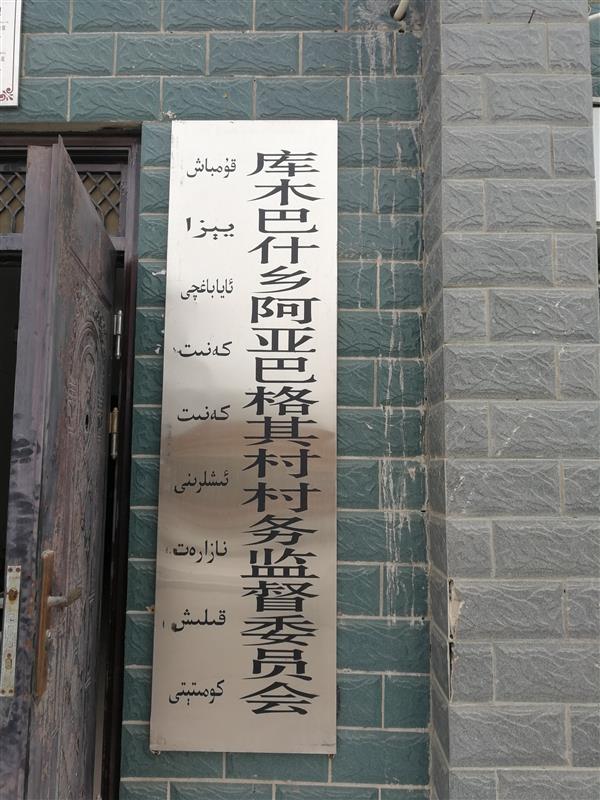 قۇمباش
يېزا
ئاياباغچى
كەنىت
كەنىت
ئىشلىرىنى
نازارەت
قىلىش
كومىتېتى
库木巴什乡阿亚巴格其村村务监督委员会